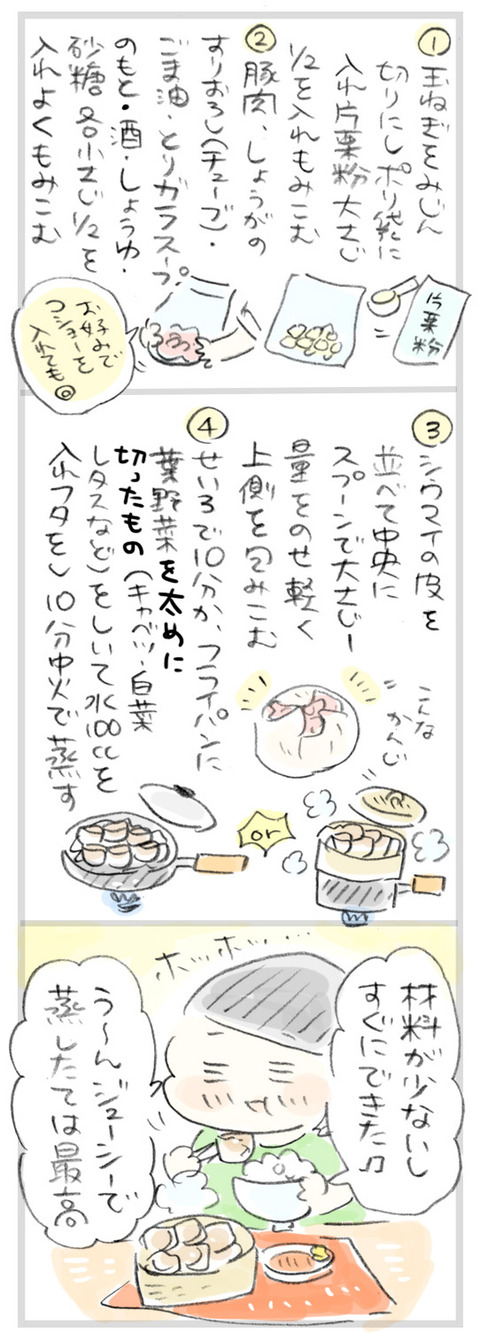 ①玉ねぎをみじん
切りにしポリ袋に
入れ片栗粉大さじ
1/2を入れもみこむ
②豚肉、しょうがの
すりおろし(チューブ)・
ごま油・とりガラスープ
のもと・酒・しょうゆ・
砂糖 各小さじ1/2を
入れよくもみこむ
片栗粉
お好みで
コショーを
入れても◎
③シウマイの皮を
並べて中央に
スプーンで大さじ1
量をのせ軽く
上側を包みこむ
こんな
かんじ
④
せいろで10分か、フライパンに
葉野菜を太めに
切ったもの(キャベツ・白菜
レタスなど)をしいて水100ccを
入れフタをし10分中火で蒸す
or
材料が少ないし
すぐにできた♫
ホッホッ…
う〜んジューシーで
蒸したては最高